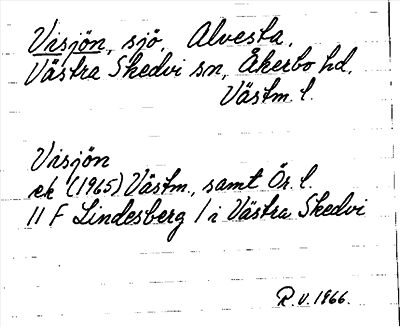 Visjön, sjö, Alvesta,
Västra Skedvi sn, Åkerbo hd,
Västm. l.
Visjön
ek (1965) Västm., samt Ör. l.
11 F Lindesberg / i Västra Skedvi
R.V. 1966.